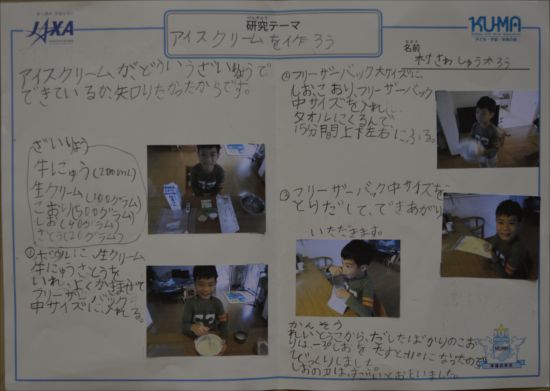 JAXA
研究テーマ
アイスクリームを作ろう
KU-MA
名前
村さわしゅうたろう
アイスクリームが、どういうざいりょうで
できているか、知りたかったからです。
ざいりょう
牛にゅう(200mL)
生クリーム(100グラム)
こおり(500グラム)
しお(40グラム)
さとう(20グラム)
生クリーム
牛にゅうさとうを
いれ、よくかきまぜて
フリーザーバック
中サイズに入れる。
フリーザーバック大サイズに、
しおこおり、フリーザーバック
中サイズを入れ
タオルにくるんで、
15分間上下左右にふる。
フリーザーバック中サイズを
とりだして、できあがり
いただきます。
かんそう
れいとうこから、だしたばかりのこお
りは、
しおを
たすと
びっくりしました
しおの力はすごいとおもいました。
KU-MA